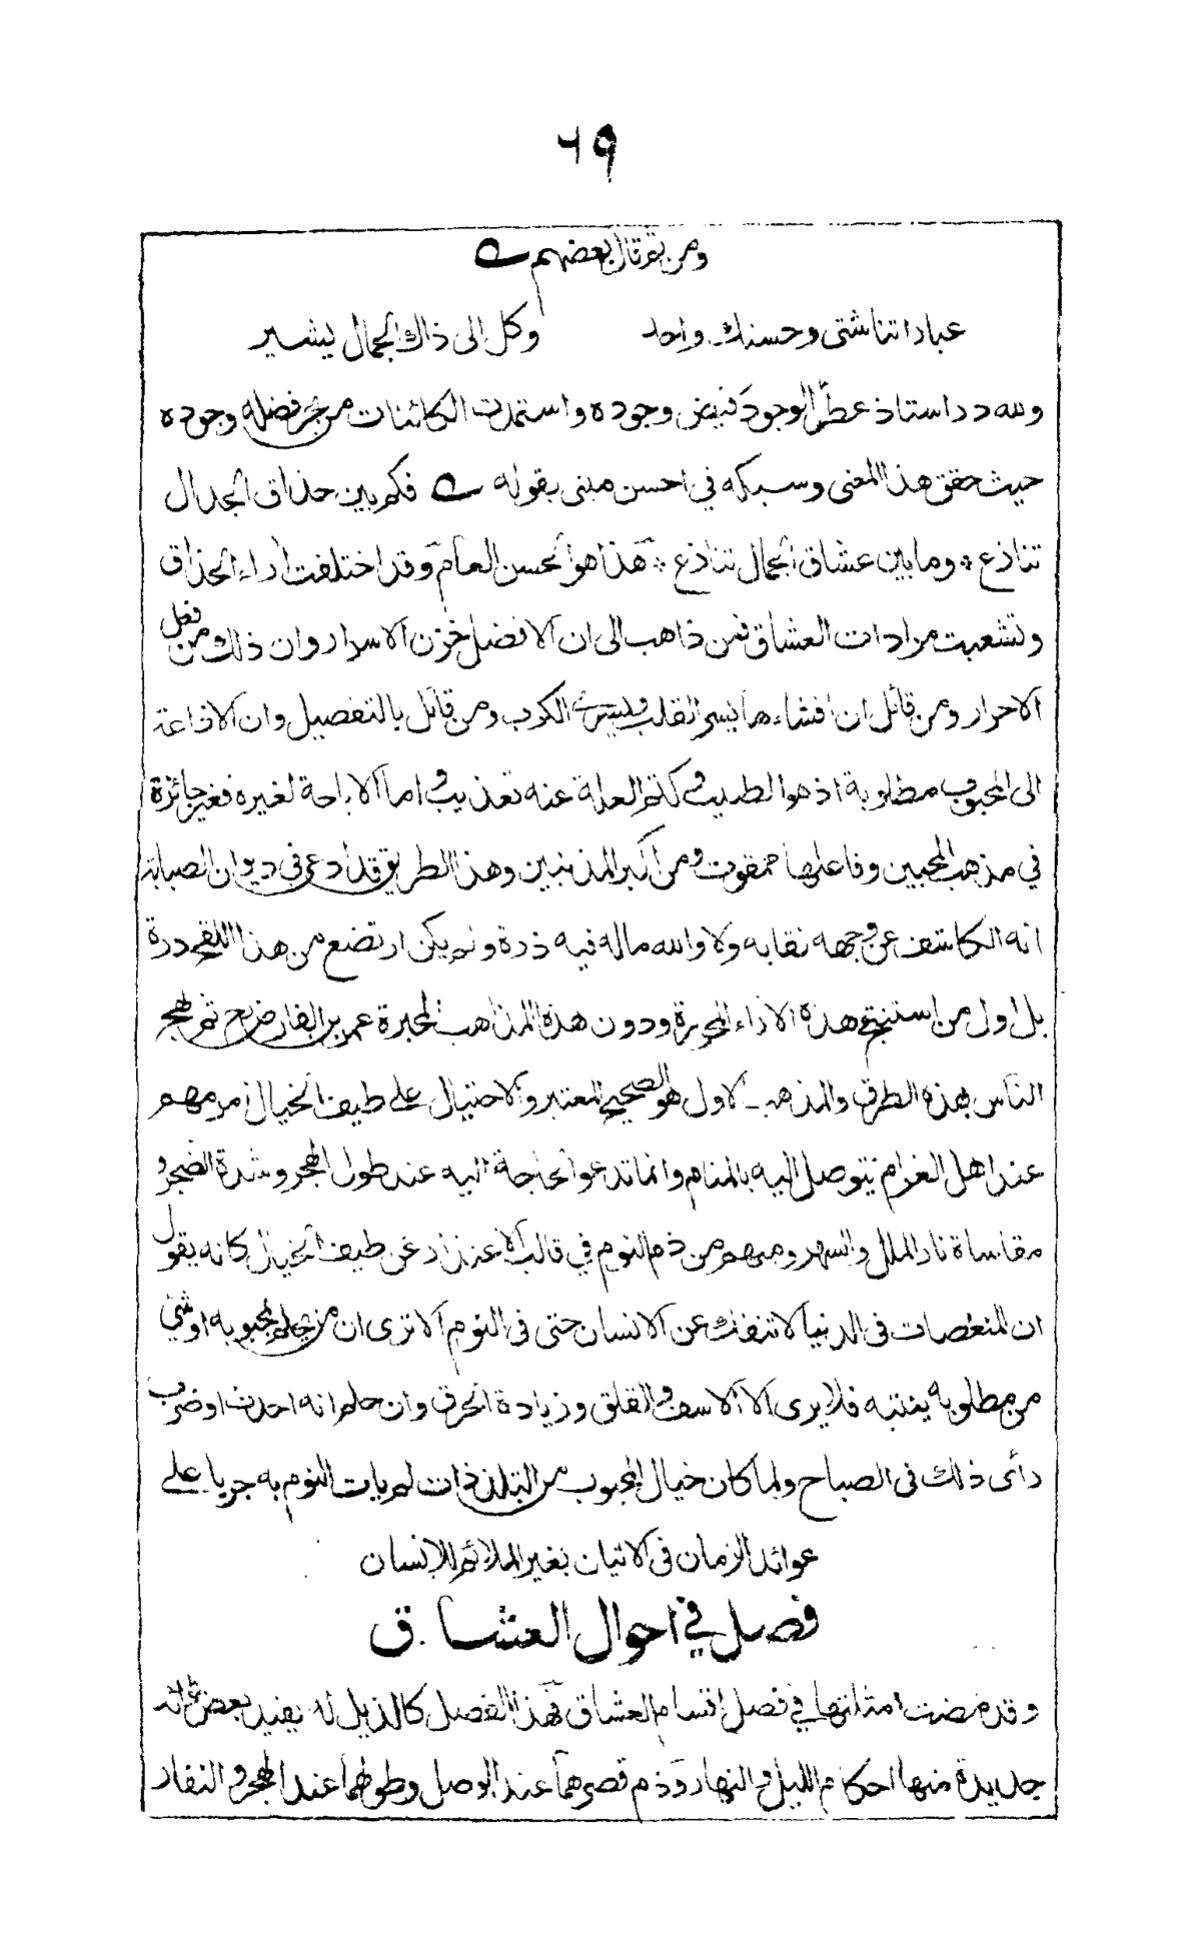 ٦٩
ومن ثم قال بعضهم
عباراتنا شتى وحسنك واحد وكل الى ذاك الجمال يشير
ولله در استاذ عطر الوجود فيض وجوده واستمدت الكائنات من بحر فضله وجوده
حيث حقق هذا المعنى وسبكه في احسن مبنى بقوله فكم بين حذاق الجدال
تنازع * وما بين عشاق الجمال تنازع * هذا هو الحسن العام وقد اختلفت اراء الحذاق
وتشعبت مرادات العشاق فمن ذاهب الى ان الافضل خزن الاسرار وان ذلك من فعل
الاحرار ومن قائل ان افشاءها يسر القلب ويسرى الكرب ومن قائل بالتفصيل وان الاذاعة
الى المحبوب مطلوبة اذ هو الطبيب وكتم العلة عنه تعذيب واما الاباحة لغيره فغير جائزة
في مذهب المحبين وفاعلها ممقوت ومن اكبر المذنبين وهذا الطريق قد ادعى فى ديوان الصبابة
انه الكاشف عن وجهه نقابه ولا والله ماله فيه ذرة ولم يكن ارتضع من هذا اللقح درة
بل اول من استنتج هذه الاراء المحررة ودون هذه المذاهب المحبرة عمر بن الفارض ثم لهج
الناس بهذه الطرق والمذهب الاول هو الصحيح المعتبر والاحتيال على طيف الخيال امر مهم
عند اهل الغرام يتوصل اليه بالمنام وانما تدعو الحاجة اليه عند طول الهجر وشدة الضجر و
مقاساة نار الملل والسهر ومنهم من ذم النوم في قالب الاعتذار عن طيف الخيال كانه يقول
ان المنغصات فى الدنيا لا تنفك عن الانسان حتى فى النوم الا ترى ان من حلم بمحبوبه او شئ
من مطلوبه ينتبه فلا يرى الا الاسف والقلق وزيادة الحرق وان حلم انه احدث او ضرب
رأى ذلك فى الصباح ولما كان خيال المحبوب من التلذذات لم يات النوم به جريا على
عوائد الزمان فى الاتيان بغير الملائم للانسان
فصل في احوال العشاق
وقد مضت امثلتها في فصل اقسام العشاق فهذا الفصل كالذيل له يفيد بعض
جديدة منها احكام الليل والنهار وذم قصرهما عند الوصل وطولهما عند الهجر والنفار